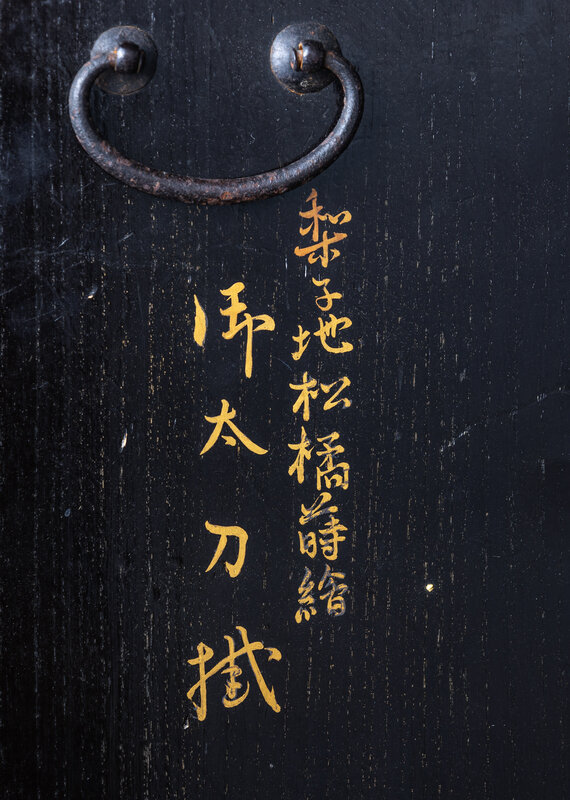 梨子地松橘蒔繪
御太刀掛